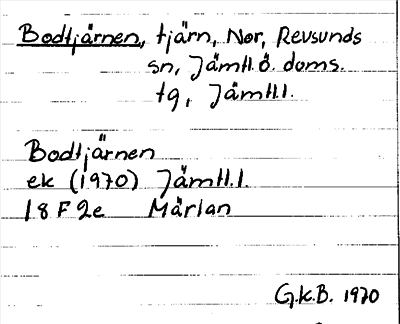 Bodtjärnen, tjärn, Nor, Revsunds
sn, Jämtl. ö. doms.
tg, Jämtl.l.
Bodtjärnen
ek (1970) Jämtl.l.
18 F 2e Märlan
G.K.B. 1970